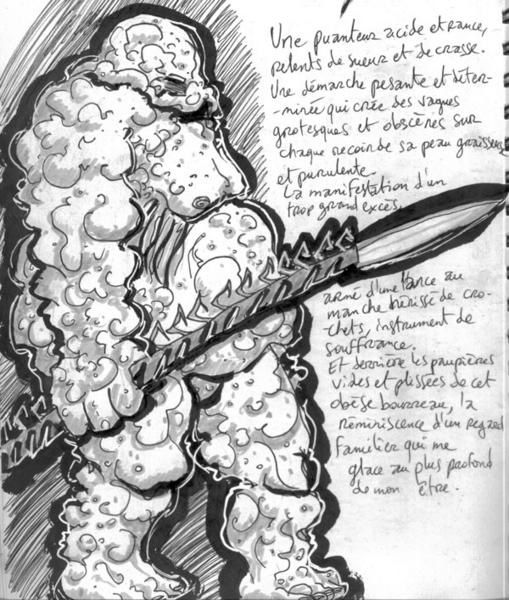 Une puanteur acide et rance,
relents de sueur et de crasse.
Une démarche pesante et déter-
-minée qui crée des vagues
grotesques et obscènes sur
chaque recoin de sa peau graisseuse
et purulente.
La manifestation d'un
trop grand excès.
armé d'une lance au
manche hérissé de cro-
chets, instrument de
souffrance.
Et derrière les paupières
vides et plissées de cet
obèse bourreau, la
réminiscence d'un regard
familier qui me
glace au plus profond
de mon être.